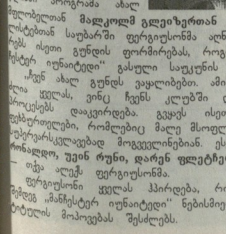 პროგრამა ახალ
მფლობელთან მალკოლმ გლეიზერთან
ლისტებთან საუბარში ფერგიუსონმა აღნ
რებს ისეთი გუნდის ფორმირებას, როგ
ჩესტერ იუნაიტედი“ გასული საუკუნის
„ჩვენ ახალ გუნდს ვაყალიბებთ. ამი
ძლია ყველას, ვინც ჩვენს კლუბში
პროცესებს დააკვირდება. გვყავს ისეთ
ფეხბურთელები, რომლებიც მალე მსოფლ
სუპერვარსკვლავებად მოგვევლინებიან. ეს
რონალდო, უეინ რუნი, დარენ ფლეტჩე
— თქვა ალექს ფერგიუსონმა.
ფერგიუსონი ყველას ჰპირდება, რო
შემდეგ „მანჩესტერ იუნაიტედი“ ნებისმიე
ტიტულის მოპოვებას შეძლებს.